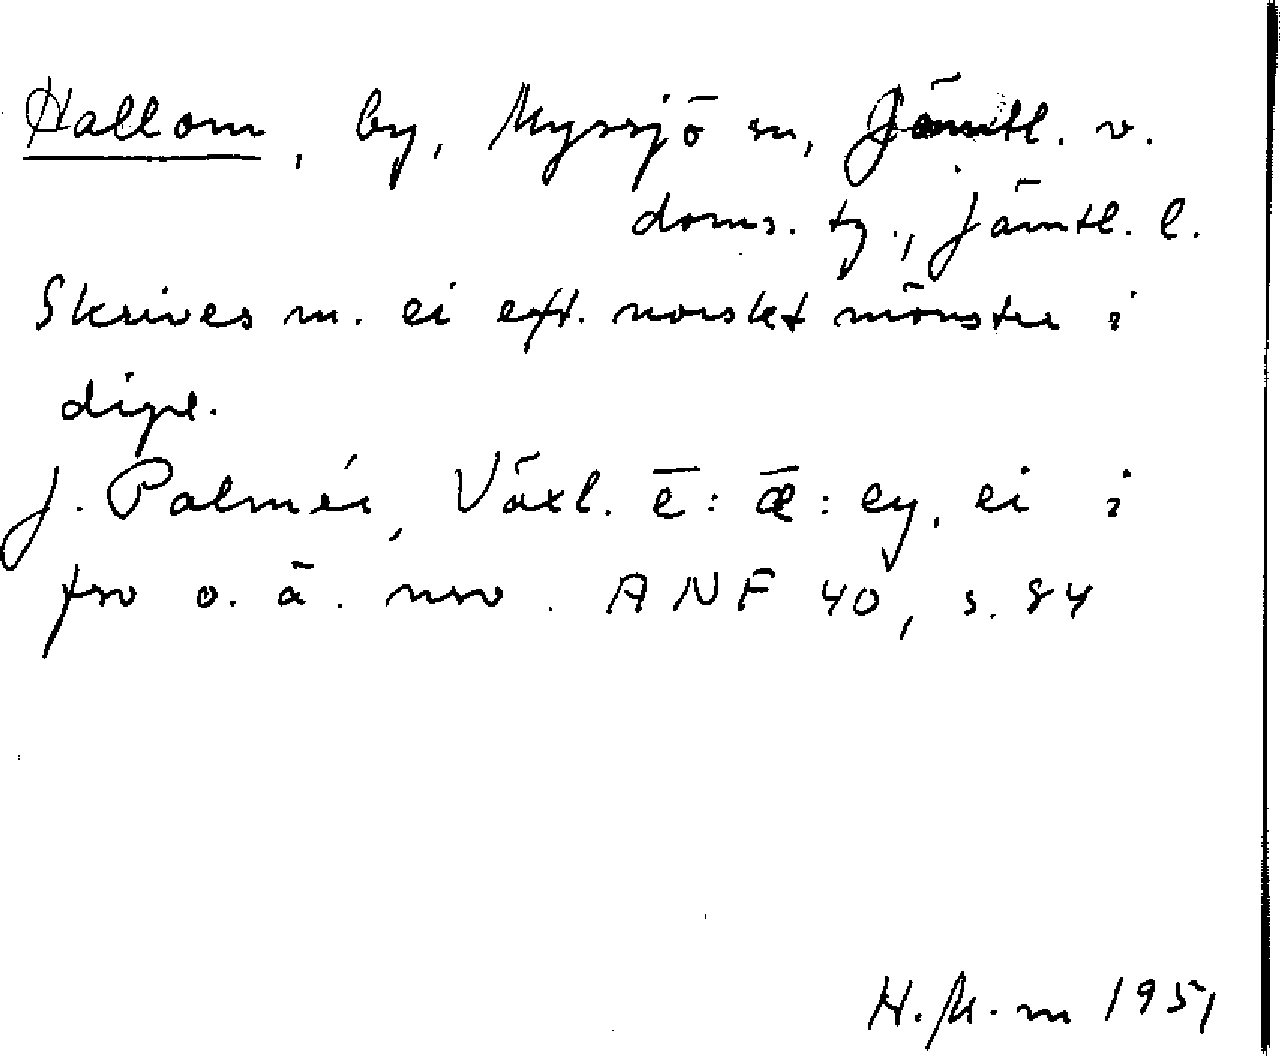 Hallom, by, Myssjö sn, Jämtl. v.
doms. tg., Jämtl. l.
Skrives m. ei eft. norskt mönster i
dipl.
J. Palmér, Växl. ē: ǣ: ey, ei i
fsv o. ä. nsv. ANF 40, s. 84
H. M-m 1951